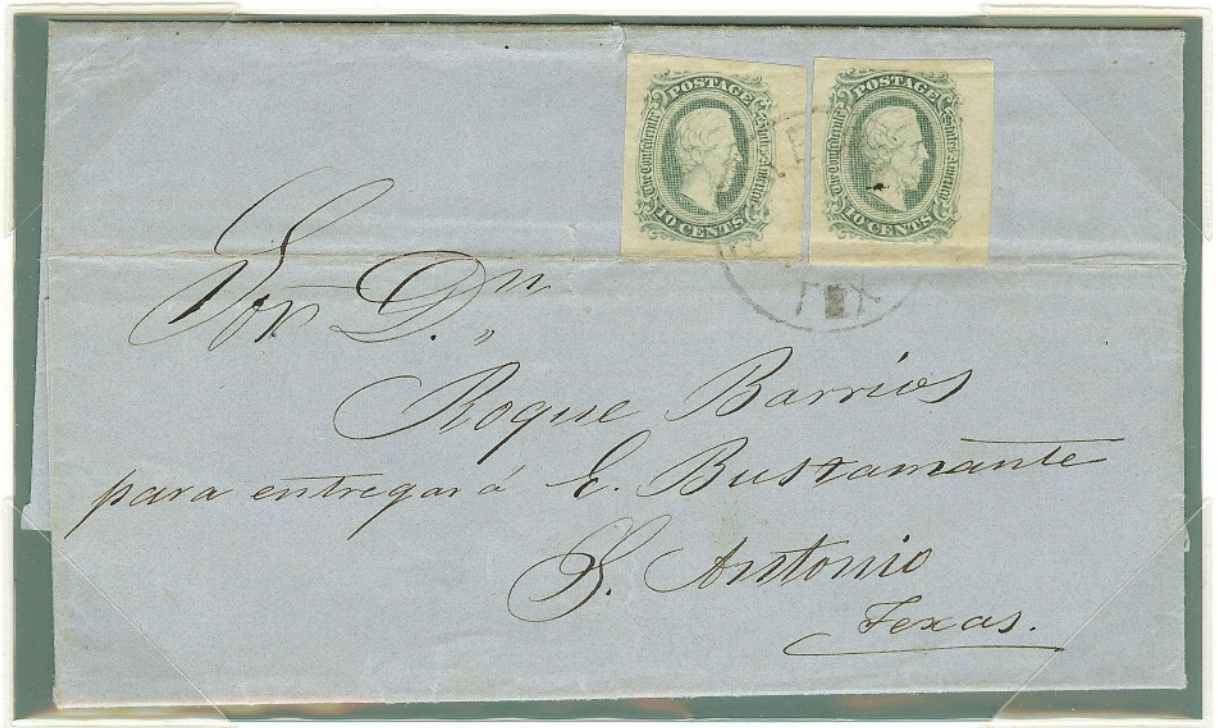 POSTAGE
The Confederate States America
10 CENTS
POSTAGE
The Confederate States America
10 CENTS
TEX
Sor Dn
Roque Barrios
para entregar á E. Bustamante
S. Antonio
Texas.